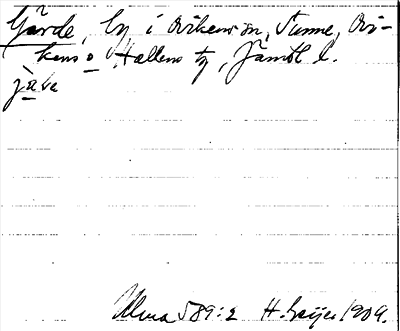 Gärde, by i Ovikens sn, Sunne, Ovi-
kens o Hallens tg, Jämtl l.
Ulma 589:2 H. Geijer 1909.